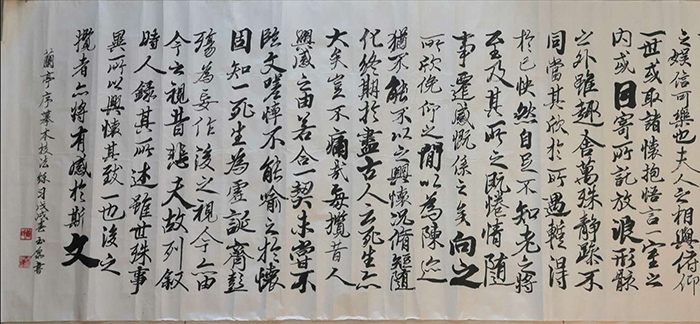 之娱信可樂也夫人之相與俯仰
一世或取諸懷抱悟言一室之
内或因寄所託放浪形骸
之外雖趣舍萬殊静躁不
同當其欣於所遇輒得
於己快然自足不知老之將
至及其所之既惓情隨
事遷感慨係之矣向之
所欣俛仰之間以為陳迹
猶不能不以之興懷況脩短隨
化終期於盡古人云死生亦
大矣豈不痛哉每攬昔人
興感之由若合一契未嘗不
臨文嗟悼不能喻之於懷
固知一死生為虛誕齊彭
殤為妄作後之視今亦由
今之視昔悲夫故列叙
時人録其所述雖世殊事
異所以興懷其致一也後之
攬者亦將有感於斯文
蘭亭序摹本技法練習書